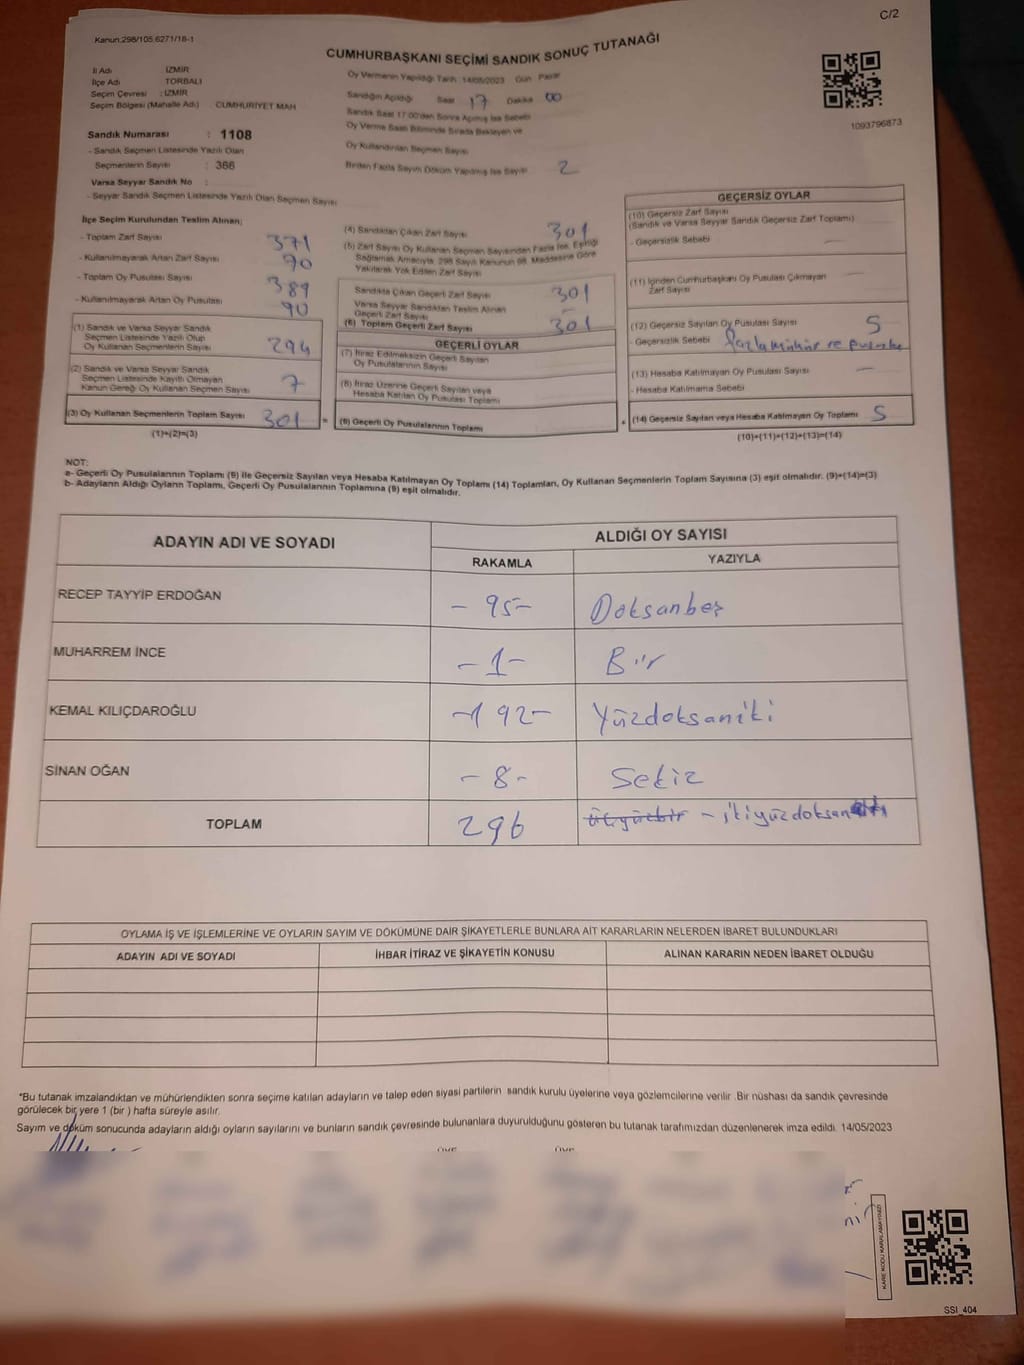 C/2
Kanun:298/105.6271/18-1
CUMHURBAŞKANI SEÇİMİ SANDIK SONUÇ TUTANAĞI
İl Adı İZMİR
İlçe Adı TORBALI
Seçim Çevresi : İZMİR
Seçim Bölgesi (Mahalle Adı) CUMHURİYET MAH
Sandık Numarası : 1108
- Sandık Seçmen Listesinde Yazılı Olan
Seçmenlerin Sayısı : 366
Varsa Seyyar Sandık No :
- Seyyar Sandık Seçmen Listesinde Yazılı Olan Seçmen Sayısı
Oy Vermenin Yapıldığı Tarih 14/05/2023 Gün Pazar
Sandığın Açıldığı Saat 17 Dakika 00
Sandık Saat 17.00'den Sonra Açılmış İse Sebebi
Oy Verme Saati Bitiminde Sırada Bekleyen ve
Oy Kullandırılan Seçmen Sayısı
Birden Fazla Sayım Döküm Yapılmış İse Sayısı 2
1093796873
İlçe Seçim Kurulundan Teslim Alınan;
- Toplam Zarf Sayısı 371
- Kullanılmayarak Artan Zarf Sayısı 70
- Toplam Oy Pusulası Sayısı 389
- Kullanılmayarak Artan Oy Pusulası 90
(1) Sandık ve Varsa Seyyar Sandık
Seçmen Listesinde Yazılı Olup
Oy Kullanan Seçmenlerin Sayısı 294
(2) Sandık ve Varsa Seyyar Sandık
Seçmen Listesinde Kayıtlı Olmayan
Kanun Gereği Oy Kullanan Seçmen Sayısı 7
(3) Oy Kullanan Seçmenlerin Toplam Sayısı 301 =
(1)+(2)=(3)
(4) Sandıktan Çıkan Zarf Sayısı 301
(5) Zarf Sayısı Oy Kullanan Seçmen Sayısından Fazla İse, Eşitliği
Sağlamak Amacıyla, 298 Sayılı Kanunun 98. Maddesine Göre
Yakılarak Yok Edilen Zarf Sayısı
Sandıkta Çıkan Geçerli Zarf Sayısı 301
Varsa Seyyar Sandıktan Teslim Alınan
Geçerli Zarf Sayısı
(6) Toplam Geçerli Zarf Sayısı 301
GEÇERLİ OYLAR
(7) İtiraz Edilmeksizin Geçerli Sayılan
Oy Pusulasının Sayısı
(8) İtiraz Üzerine Geçerli Sayılan veya
Hesaba Katılan Oy Pusulası Toplamı
(9) Geçerli Oy Pusulalarının Toplamı +
GEÇERSİZ OYLAR
(10) Geçersiz Zarf Sayısı
(Sandık ve Varsa Seyyar Sandık Geçersiz Zarf Toplamı)
- Geçersizlik Sebebi —
(11) İçinden Cumhurbaşkanı Oy Pusulası Çıkmayan
Zarf Sayısı —
(12) Geçersiz Sayılan Oy Pusulası Sayısı 5
- Geçersizlik Sebebi fazla mühür ve pusula
(13) Hesaba Katılmayan Oy Pusulası Sayısı —
- Hesaba Katılmama Sebebi
(14) Geçersiz Sayılan veya Hesaba Katılmayan Oy Toplamı 5
(10)+(11)+(12)+(13)=(14)
NOT:
a- Geçerli Oy Pusulalarının Toplamı (9) ile Geçersiz Sayılan veya Hesaba Katılmayan Oy Toplamı (14) Toplamları, Oy Kullanan Seçmenlerin Toplam Sayısına (3) eşit olmalıdır. (9)+(14)=(3)
b- Adayların Aldığı Oyların Toplamı, Geçerli Oy Pusulalarının Toplamına (9) eşit olmalıdır.
ADAYIN ADI VE SOYADI ALDIĞI OY SAYISI
RAKAMLA YAZIYLA
RECEP TAYYİP ERDOĞAN - 95 - Doksanbeş
MUHARREM İNCE - 1 - Bir
KEMAL KILIÇDAROĞLU - 192 - Yüzdoksaniki
SİNAN OĞAN - 8 - Sekiz
TOPLAM 296 üçyüzbir - ikiyüzdoksanaltı
OYLAMA İŞ VE İŞLEMLERİNE VE OYLARIN SAYIM VE DÖKÜMÜNE DAİR ŞİKAYETLERLE BUNLARA AİT KARARLARIN NELERDEN İBARET BULUNDUKLARI
ADAYIN ADI VE SOYADI İHBAR İTİRAZ VE ŞİKAYETİN KONUSU ALINAN KARARIN NEDEN İBARET OLDUĞU
*Bu tutanak imzalandıktan ve mühürlendikten sonra seçime katılan adayların ve talep eden siyasi partilerin sandık kurulu üyelerine veya gözlemcilerine verilir .Bir nüshası da sandık çevresinde
görülecek bir yere 1 (bir ) hafta süreyle asılır.
Sayım ve döküm sonucunda adayların aldığı oyların sayılarını ve bunların sandık çevresinde bulunanlara duyurulduğunu gösteren bu tutanak tarafımızdan düzenlenerek imza edildi. 14/05/2023
ÜYE ÜYE
KARE KODU KARALAMAYINIZ!
SSI_404